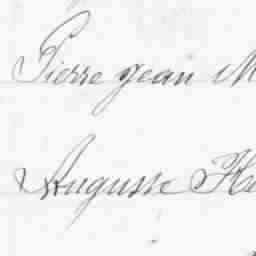 Pierre Jean M
Auguste He